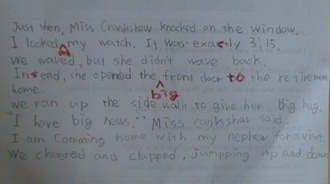 Just then, Miss Crankshaw knocked on the window.
I looked my watch. It was exactly 3:15.
We waved, but she didn't wave back.
Instead, she opened the front door to the retirement
home. big
We ran up the side walk to give her big hug.
"I have big news." Miss Crankshaw said.
I am Comming home with my nephew for a visit.
We cheered and clapped, jumpping up and down